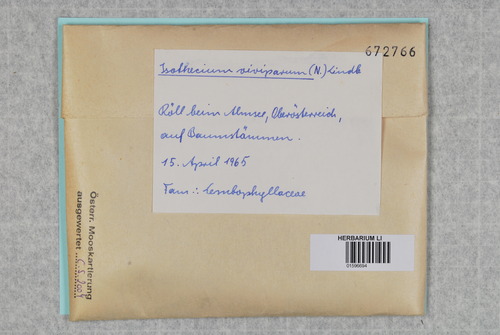 672766
Isothecium viviparum (N.) Lindb
Röll beim Almsee, Oberösterreich,
auf Baumstämmen.
15. April 1965
Fam.: Lembophyllaceae
HERBARIUM LI
01596694
Österr. Mooskartierung
ausgewertet